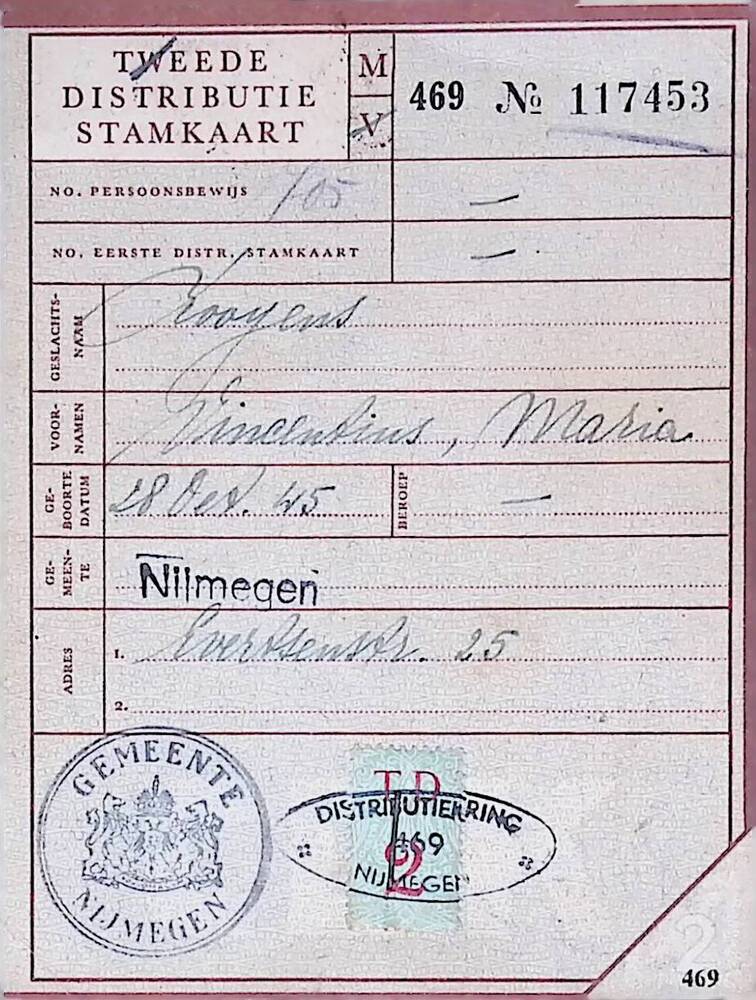 TWEEDE
DISTRIBUTIE
STAMKAART
M
V
469 № 117453
NO. PERSOONSBEWIJS 705 —
NO. EERSTE DISTR. STAMKAART —
GESLACHTS-
NAAM
VOOR-
NAMEN
Vincentius, Maria
GE-
BOORTE
DATUM
28 Oct. 45
BEROEP
—
GE-
MEEN-
TE
Nijmegen
ADRES
1. Evertsenstr. 25
2.
GEMEENTE
NIJMEGEN
T D
2
DISTRIBUTIEKRING
469
NIJMEGEN
2
469